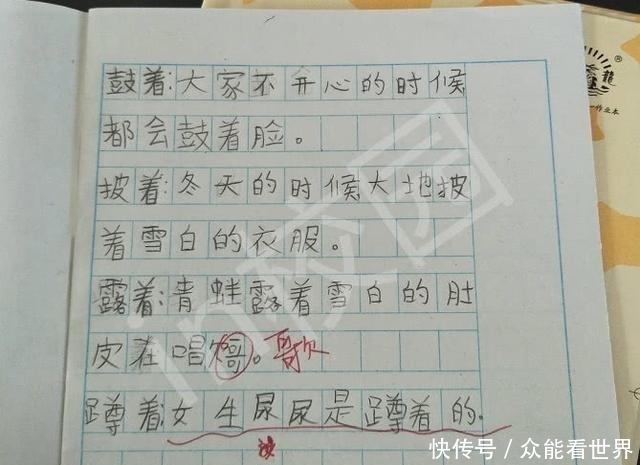 鼓着:大家不开心的时候
都会鼓着脸。
披着:冬天的时候大地披
着雪白的衣服。
露着:青蛙露着雪白的肚
皮在唱哥。歌
蹲着:女生尿尿是蹲着的.
in校园
龍
®
作业本
快传号/众能看世界